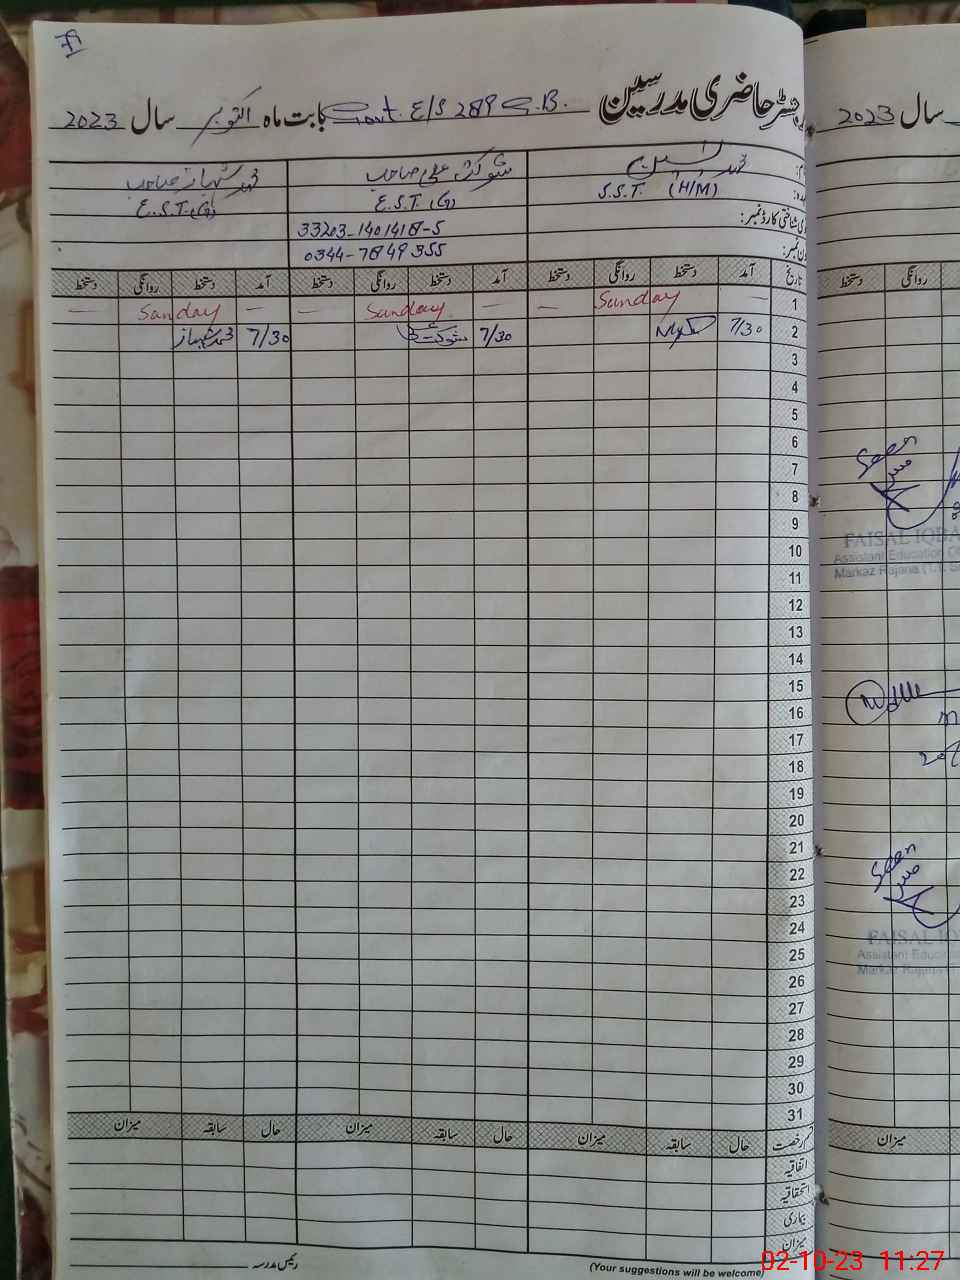 رجسٹر حاضری مدرسین Govt. E/S 289 G.B. بابت ماہ اکتوبر سال 2023
محمد یٰسین شوکت علی صاحب محمد شہباز صاحب
S.S.T. (H/M) E.S.T. (G) E.S.T. (G)
33203-1401418-5
0344-7849355
تاریخ آمد دستخط روانگی دستخط آمد دستخط روانگی دستخط آمد دستخط روانگی دستخط
1 — Sunday — — Sunday — — Sunday —
2 7/30 7/30 شوکت علی 7/30 محمد شہباز
3
4
5
6
7
8
9
10
11
12
13
14
15
16
17
18
19
20
21
22
23
24
25
26
27
28
29
30
31
قسم رخصت حال سابقہ میزان حال سابقہ میزان حال سابقہ میزان
اتفاقیہ
استحقاقیہ
بیماری
میزان
رئیس مدرسہ
(Your suggestions will be welcome)
سال 2023
روانگی دستخط
Seen
FAISAL IQBA
Assistant Education Of
Markaz Rajana (T.T. S
Seen
FAISAL IQ
Assistant Educati
Markaz Rajana
میزان
02-10-23 11:27